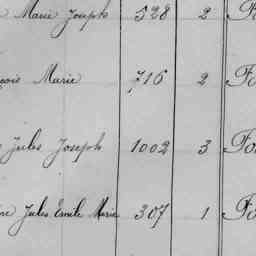 Marie Joseph 528 2
Marie 716 2
Jules Joseph 1002 3
Jules Emile Marie 307 1